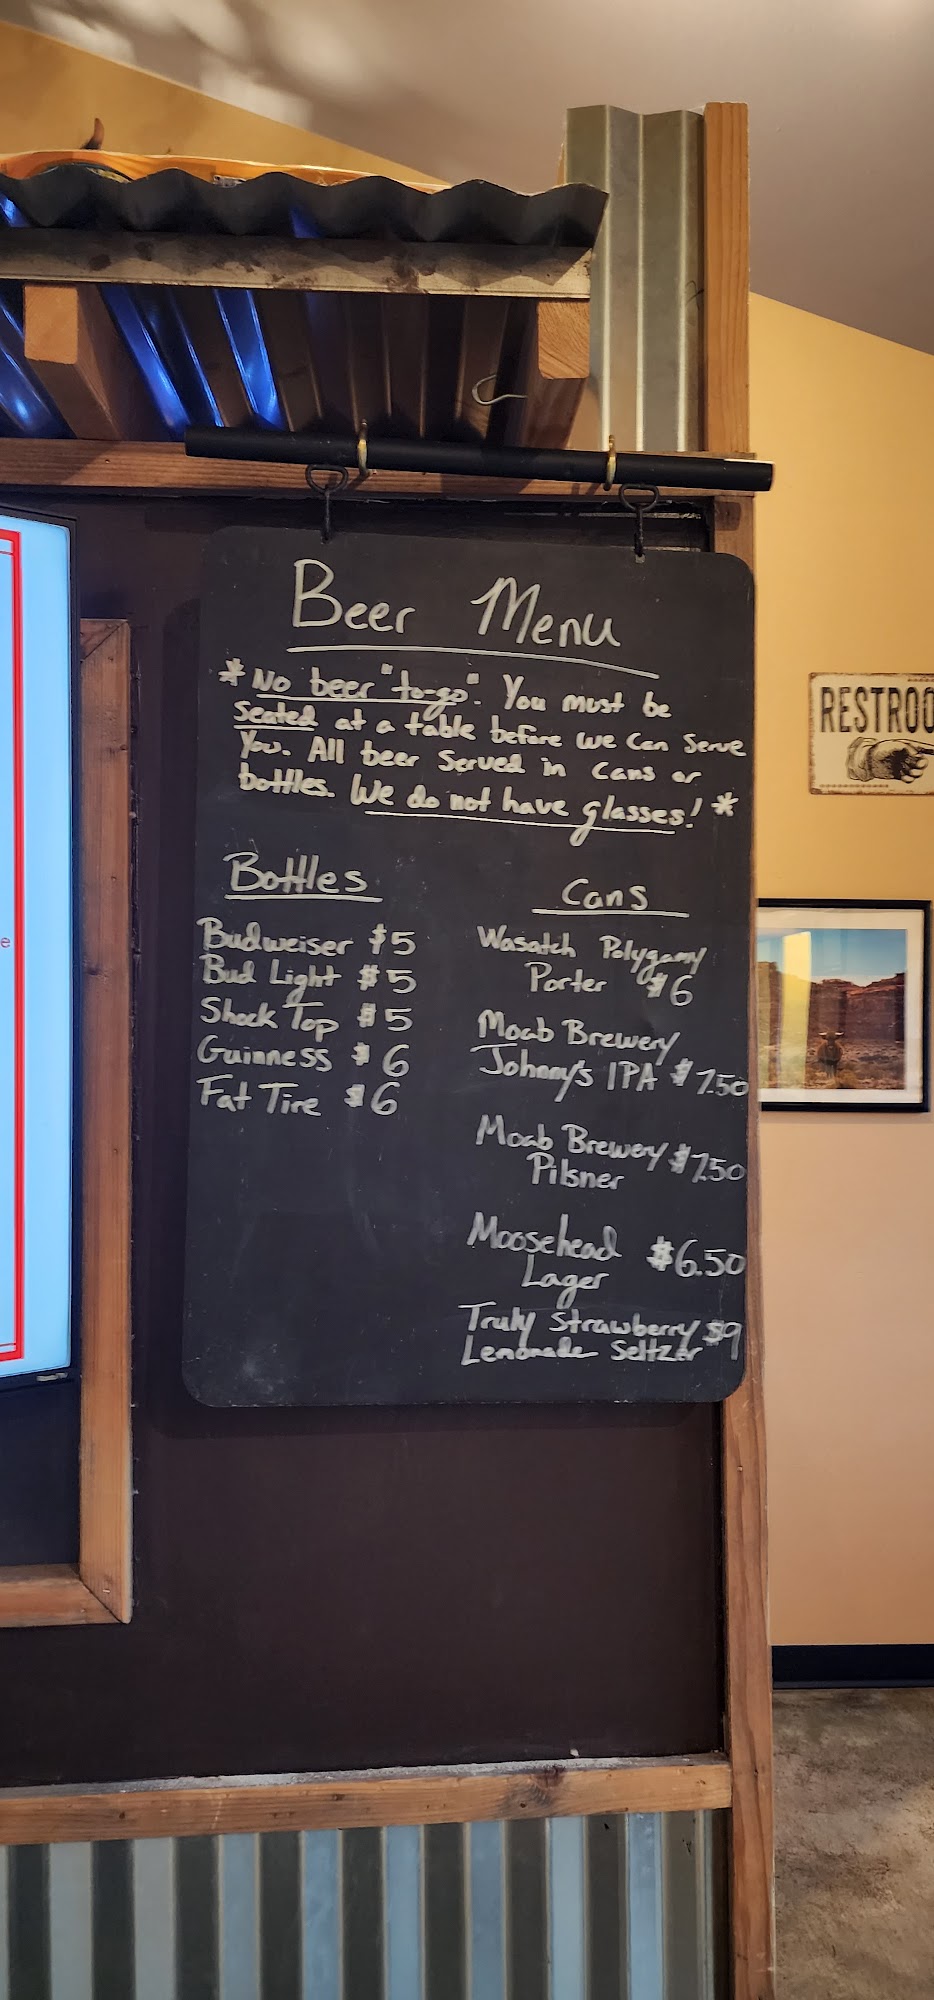 Beer Menu
*No beer "to-go". You must be
seated at a table before we can serve
you. All beer served in cans or
bottles. We do not have glasses! *
Bottles
Budweiser $5
Bud Light $5
Shock Top $5
Guinness $6
Fat Tire $6
Cans
Wasatch Polygamy
Porter $6
Moab Brewery
Johnny's IPA $7.50
Moab Brewery $7.50
Pilsner
Moosehead $6.50
Lager
Truly Strawberry $9
Lemonade Seltzer
RESTROO
e